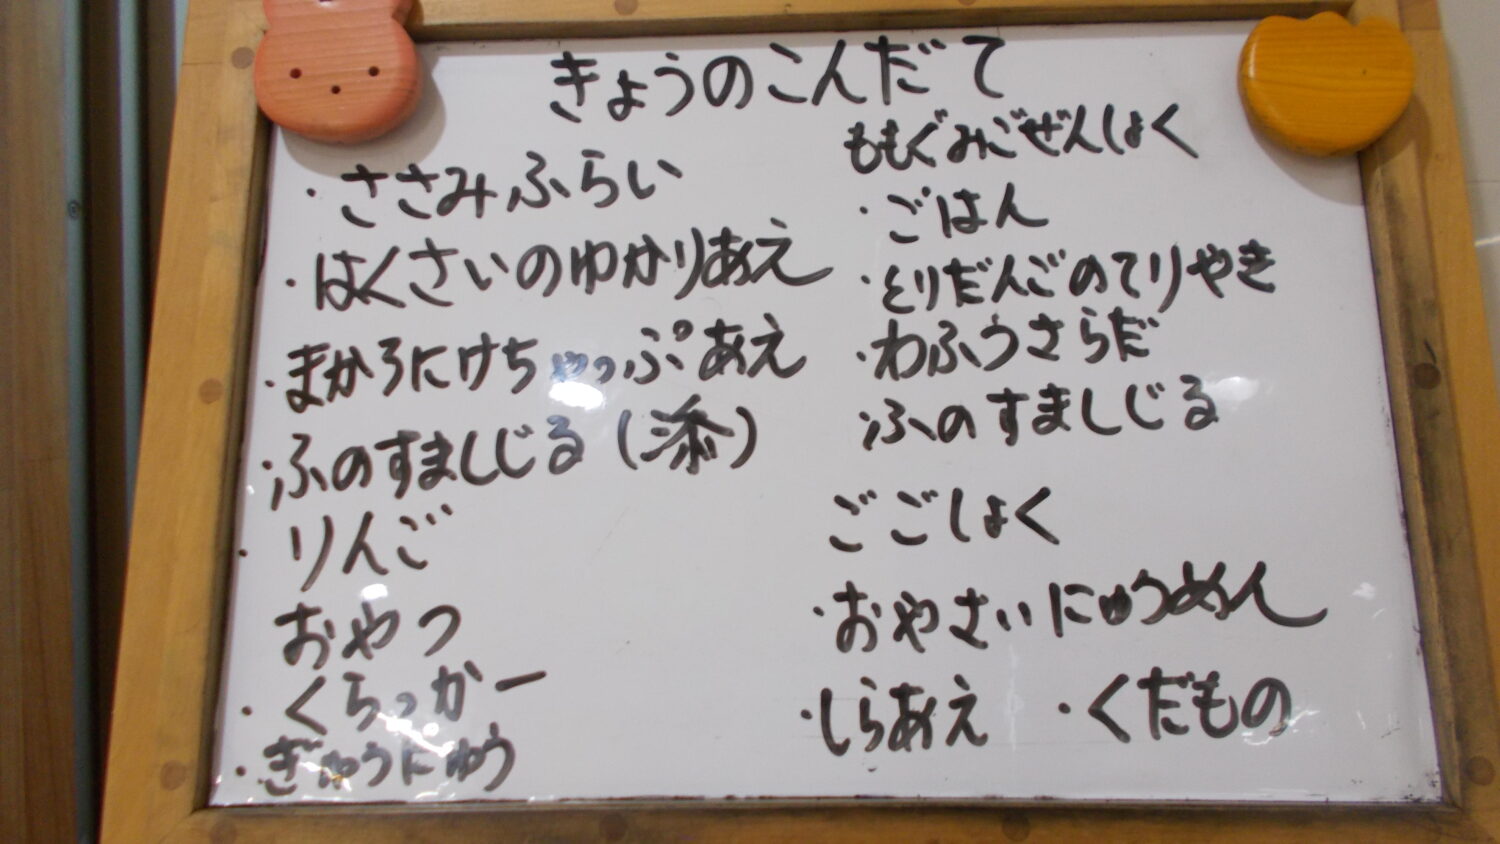 きょうのこんだて
・ささみふらい
・はくさいのゆかりあえ
・まかろにけちゃっぷあえ
・ふのすましじる(添)
・りんご
おやつ
・くらっかー
・ぎゅうにゅう
ももぐみごぜんしょく
・ごはん
・とりだんごのてりやき
・わふうさらだ
・ふのすましじる
ごごしょく
・おやさいにゅうめん
・しらあえ ・くだもの